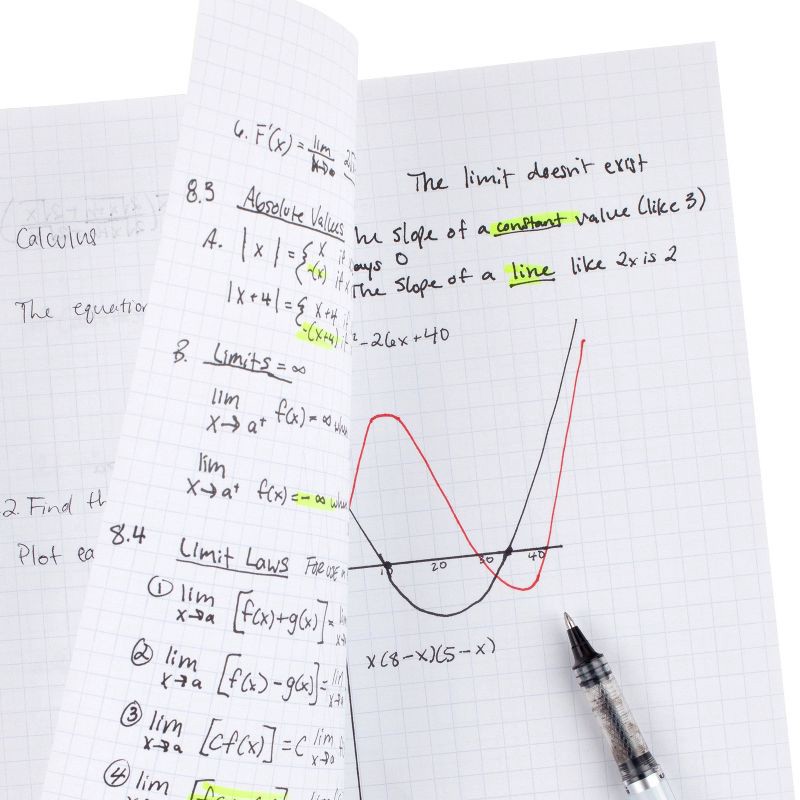 Calculus
The equation
2. Find th
Plot ea
6. F'(x) = lim
x→a
8.3 Absolute Values
A. |x| = { x if
-(x) if
|x+4| = { x+4
-(x+4)
B. Limits = ∞
lim
x→a⁺ f(x) = ∞ when
lim
x→a⁺ f(x) = -∞ when
8.4 Limit Laws FOR USE
① lim
x→a [f(x)+g(x)] =
② lim
x→a [f(x)-g(x)] = lim
③ lim
x→a [Cf(x)] = C lim
x→a
④ lim
The limit doesn't exist
he slope of a constant value (like 3)
ays 0
The slope of a line like 2x is 2
² -26x+40
10 20 30 40
x(8-x)(5-x)